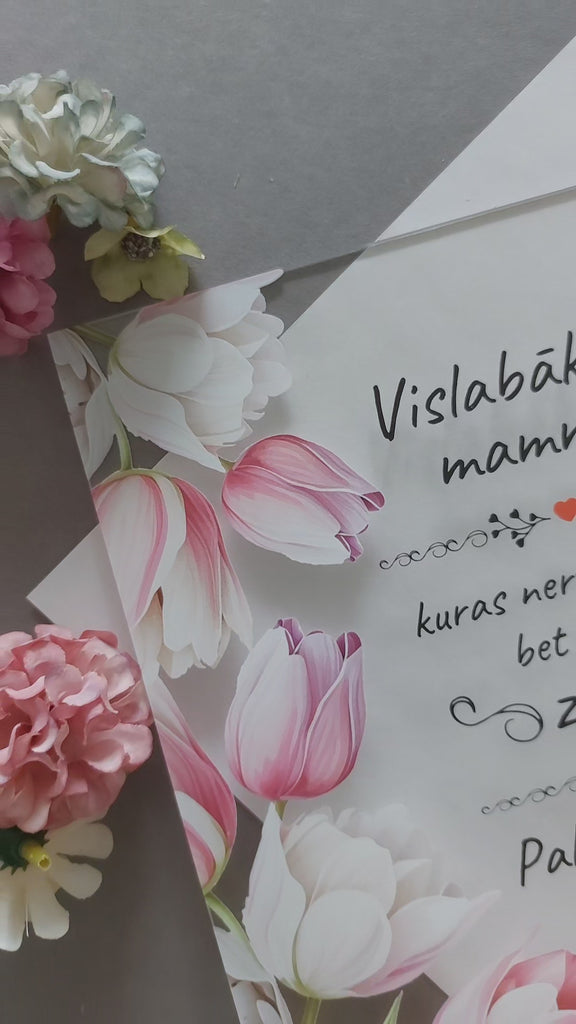 Vislabāk
mamm
kuras ner
bet
Z
Pal